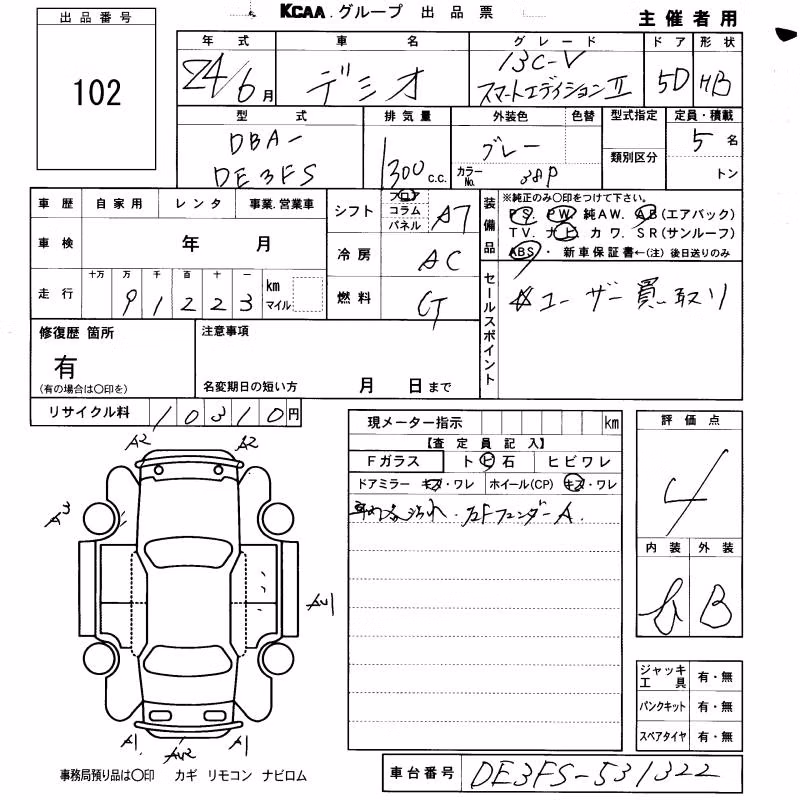 KCAA グループ 出品票
主催者用
出品番号
102
年式 車名 グレード ドア 形状
24/6月 デミオ 13C-V スマートエディションⅡ 5D HB
型式 排気量 外装色 色替 型式指定 定員・積載
DBA-DE3FS 1300c.c. グレー カラーNo. 38P 類別区分 5名 トン
車歴 自家用 レンタ 事業.営業車
車検 年 月
走行 十万 万 千 百 十 一 km マイル
91223
シフト フロア コラム パネル AT
冷房 AC
燃料
装備品 ※純正のみ〇印をつけて下さい。
PS. PW 純AW. AB(エアバック)
TV. ナビ カワ. SR(サンルーフ)
ABS・ 新車保証書←(注) 後日送りのみ
セールスポイント ☆ユーザー買取り
修復歴 箇所 注意事項
有
(有の場合は〇印を) 名変期日の短い方 月 日まで
リサイクル料 10310円
現メーター指示 km
【査定員記入】
Fガラス トビ石 ヒビワレ
ドアミラー キズ・ワレ ホイール(CP) キズ・ワレ
左Fフェンダー A.
評価点
4
内装 外装
B
A2 A2
A3
A1 A1
ジャッキ工具 有・無
パンクキット 有・無
スペアタイヤ 有・無
事務局預り品は〇印 カギ リモコン ナビロム
車台番号 DE3FS-531322